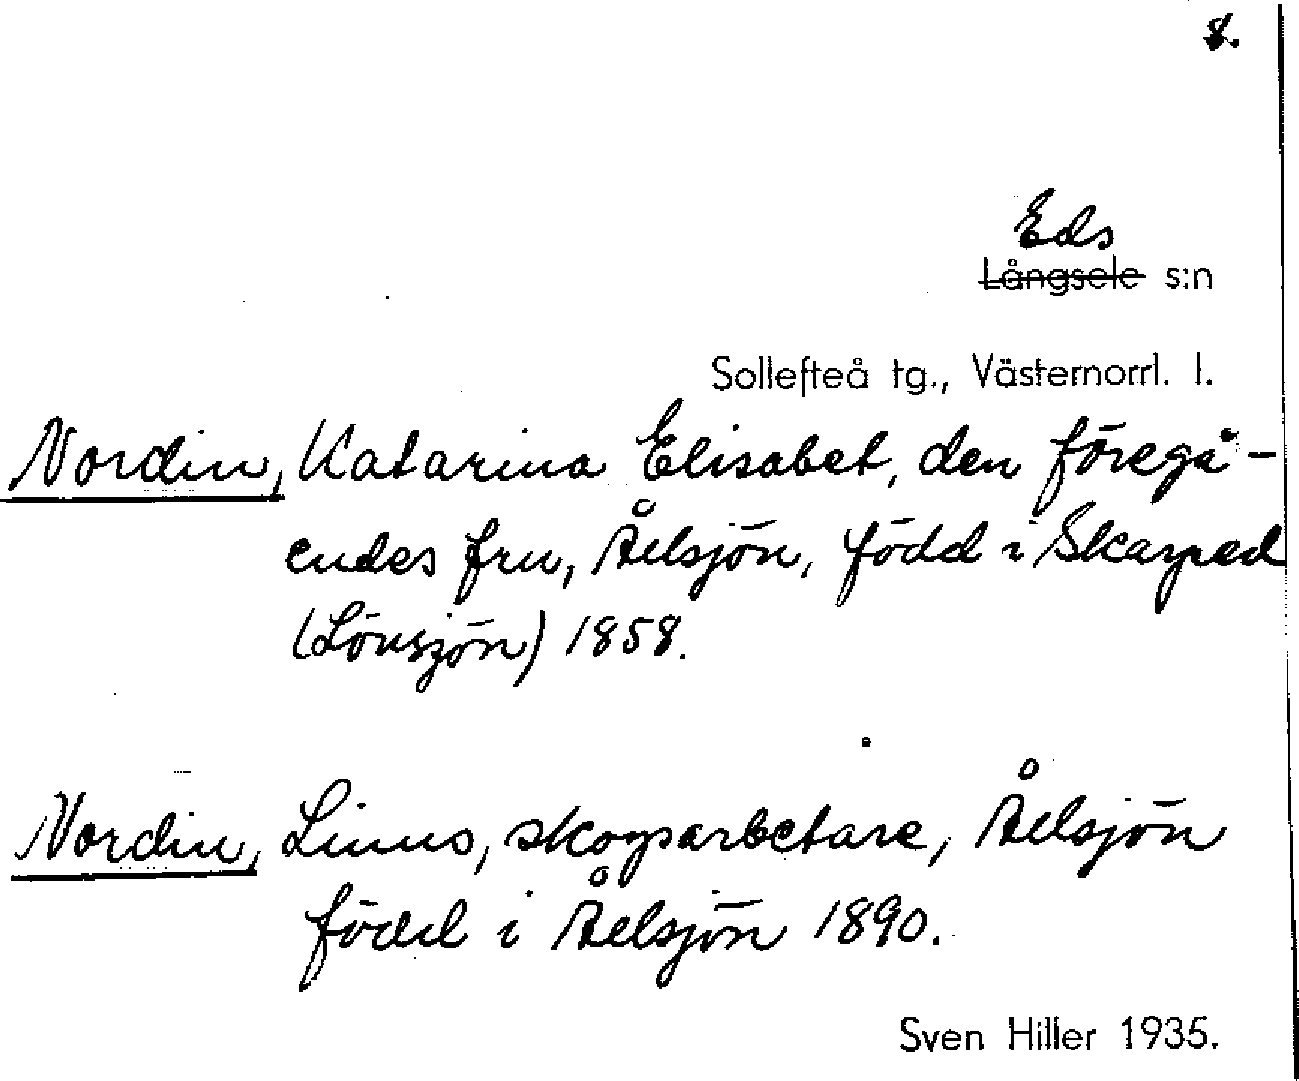 8.
Eds
Långsele s:n
Sollefteå tg., Västernorrl. l.
Nordin, Katarina Elisabet, den föregå-
endes fru, Ålsjön, född i Skarped
(Lövsjön) 1858.
Nordin, Linus, skogsarbetare, Ålsjön
född i Ålsjön 1890.
Sven Hiller 1935.